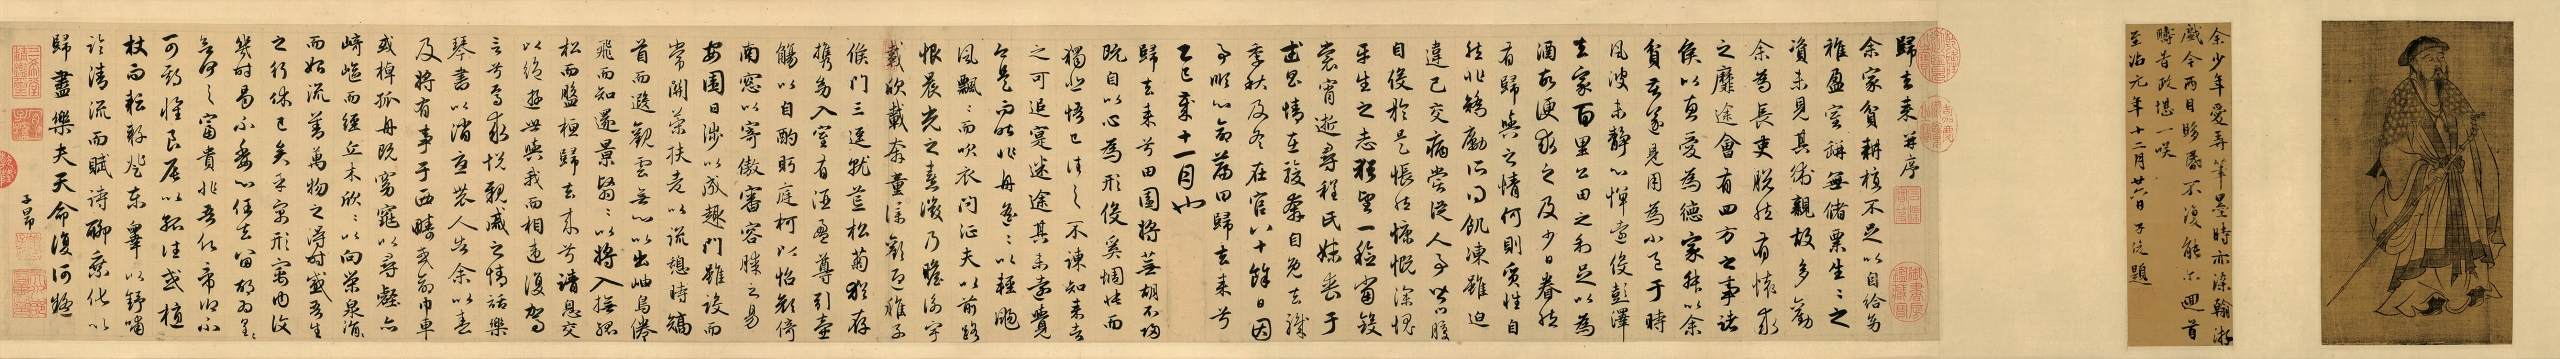 余少年愛弄筆墨時亦染翰游
戲今两目眵昏不復能尔迴首
疇昔政堪一咲
至治元年十二月廿六日子昂題
歸去来并序
余家貧耕植不足以自給幼
稚盈室缾無儲粟生々之
資未見其術親故多勸
余為長吏脱然有懷求
之靡途會有四方之事諸
侯以惠愛為德家叔以余
貧苦遂見用為小邑于時
風波未静心憚遠役彭澤
去家百里公田之利足以為
酒故便求之及少日眷然
有歸與之情何則質性自
然非矯勵所得飢凍雖迫
違己交病嘗從人事皆口腹
自役於是悵然慷慨深愧
平生之志猶望一稔當斂
裳宵逝尋程氏妹喪于
武昌情在駿奔自免去職
季秋及冬在官八十餘日因
事順心命篇曰歸去来兮
乙巳歲十一月也
歸去来兮田園將蕪胡不歸
既自以心為形役奚惆悵而
獨悲悟已往之不諫知来者
之可追寔迷途其未遠覺
今是而昨非舟遥々以輕颺
風飄々而吹衣問征夫以前路
恨晨光之熹微乃瞻衡宇
載欣載奔童僕歡迎稚子
候門三逕就荒松菊猶存
携幼入室有酒盈尊引壺
觴以自酌眄庭柯以怡顔倚
南窓以寄傲審容膝之易
安園日涉以成趣門雖設而
常關策扶老以流憩時矯
首而遐觀雲無心以出岫鳥倦
飛而知還景翳々以將入撫孤
松而盤桓歸去来兮請息交
以絶遊世與我而相違復駕
言兮焉求悦親戚之情話樂
琴書以消憂農人告余以春
及將有事于西疇或命巾車
或棹孤舟既窈窕以尋壑亦
崎嶇而經丘木欣々以向榮泉涓々
而始流善萬物之得時感吾生
之行休已矣乎寓形宇内復
幾時曷不委心任去留胡為遑々
兮何之富貴非吾願帝鄉不
可期懷良辰以孤往或植
杖而耘耔登東臯以舒嘯
臨清流而賦詩聊乘化以
歸盡樂夫天命復何疑
子昂